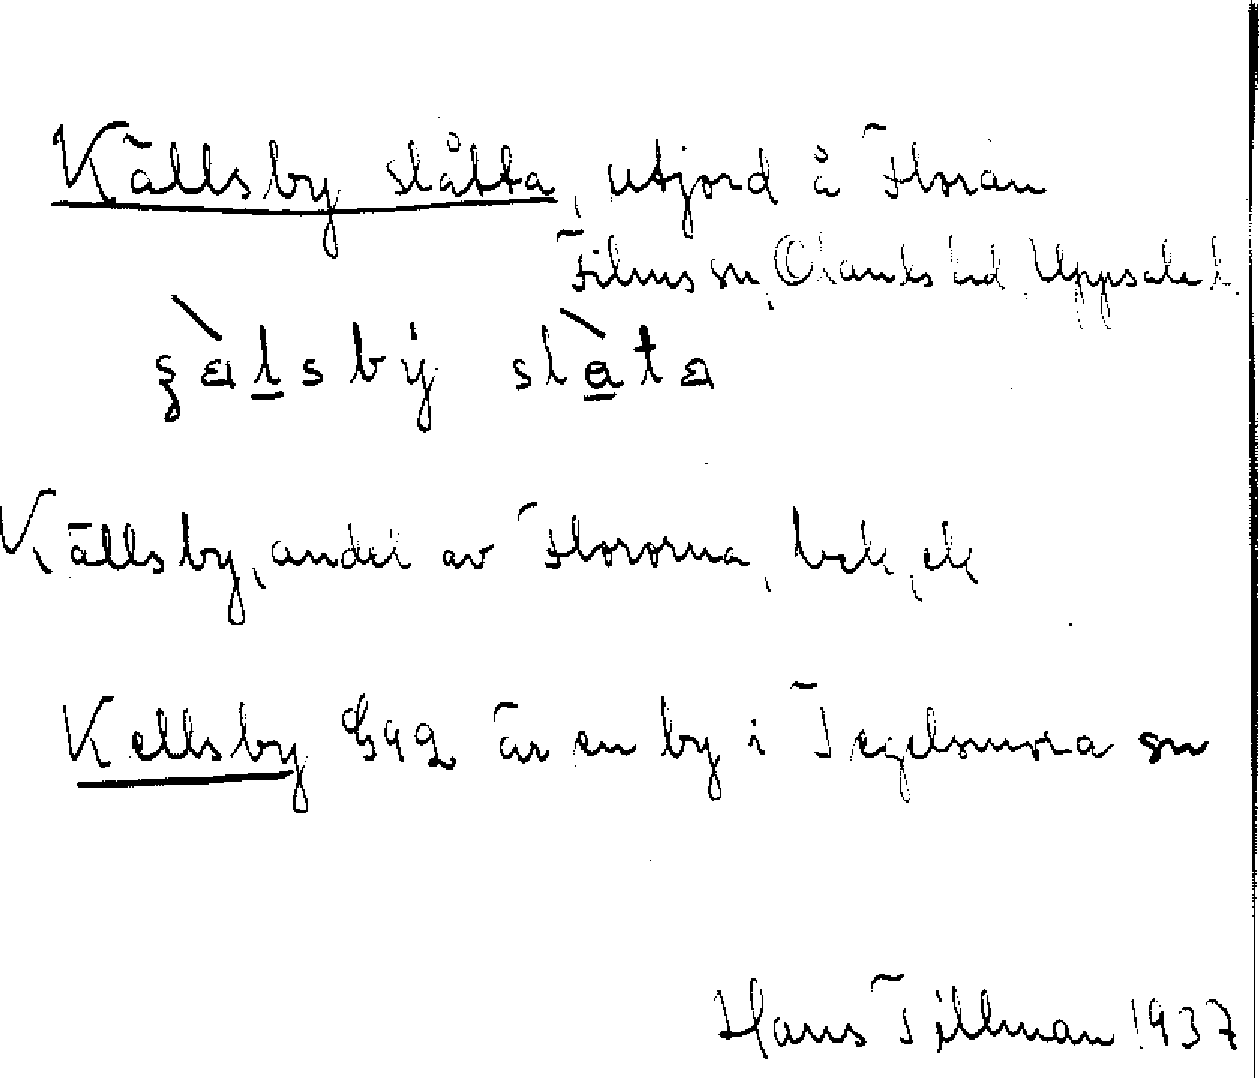 Källsby slåtta, utjord å Florån
Films sn, Olands hd, Uppsala l.
slåta
Källsby, andel av Flororna, bek, ek
Kellsby G42 är en by i Tegelsmora sn
Hans Tillman 1937